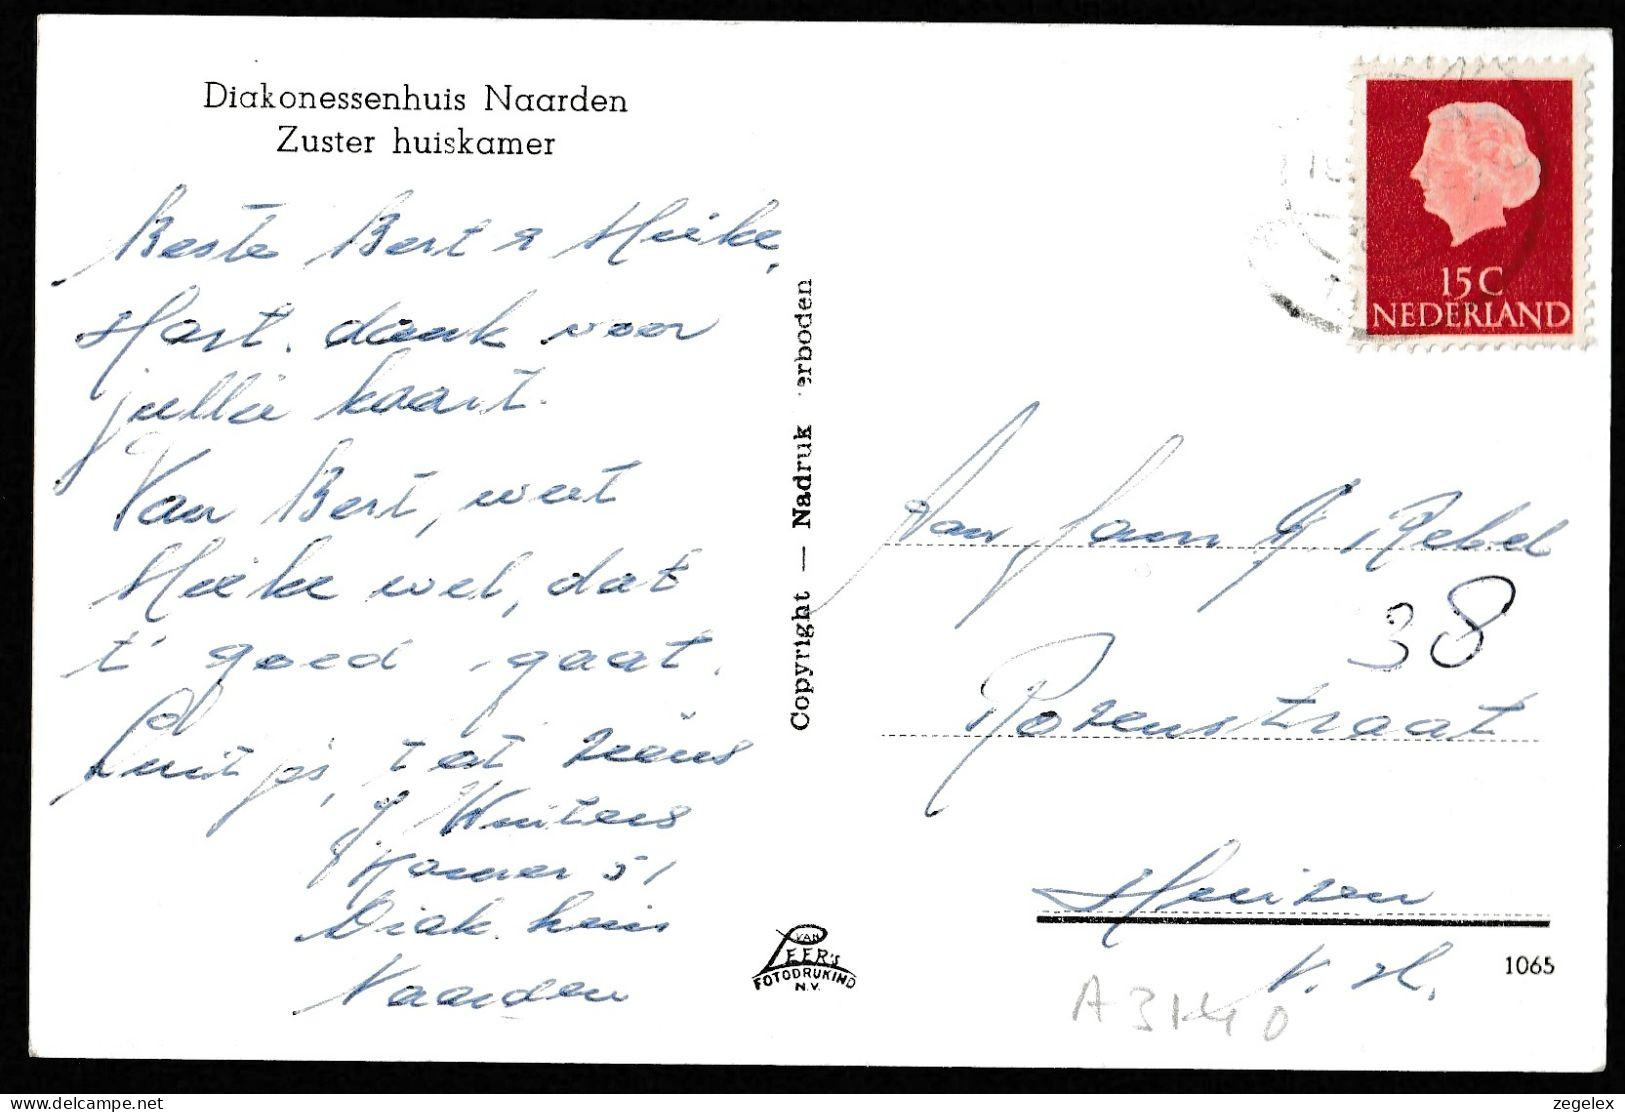 Diakonessenhuis Naarden
Zuster huiskamer
Beste Bert & Mieke,
Hart. dank voor
jullie kaart.
Van Bert, weet
Mieke wel, dat
t' goed gaat.
Luitjes, tot ziens
J Wuiters
Kamer 51
Diak. huis
Naarden
Copyright — Nadruk erboden
VAN
LEER'S
FOTODRUKIND
N.V.
15 C
NEDERLAND
Aan Jam G. Rebel
38
Rozenstraat
Huizen
N. H.
1065
A 3140
zegelex